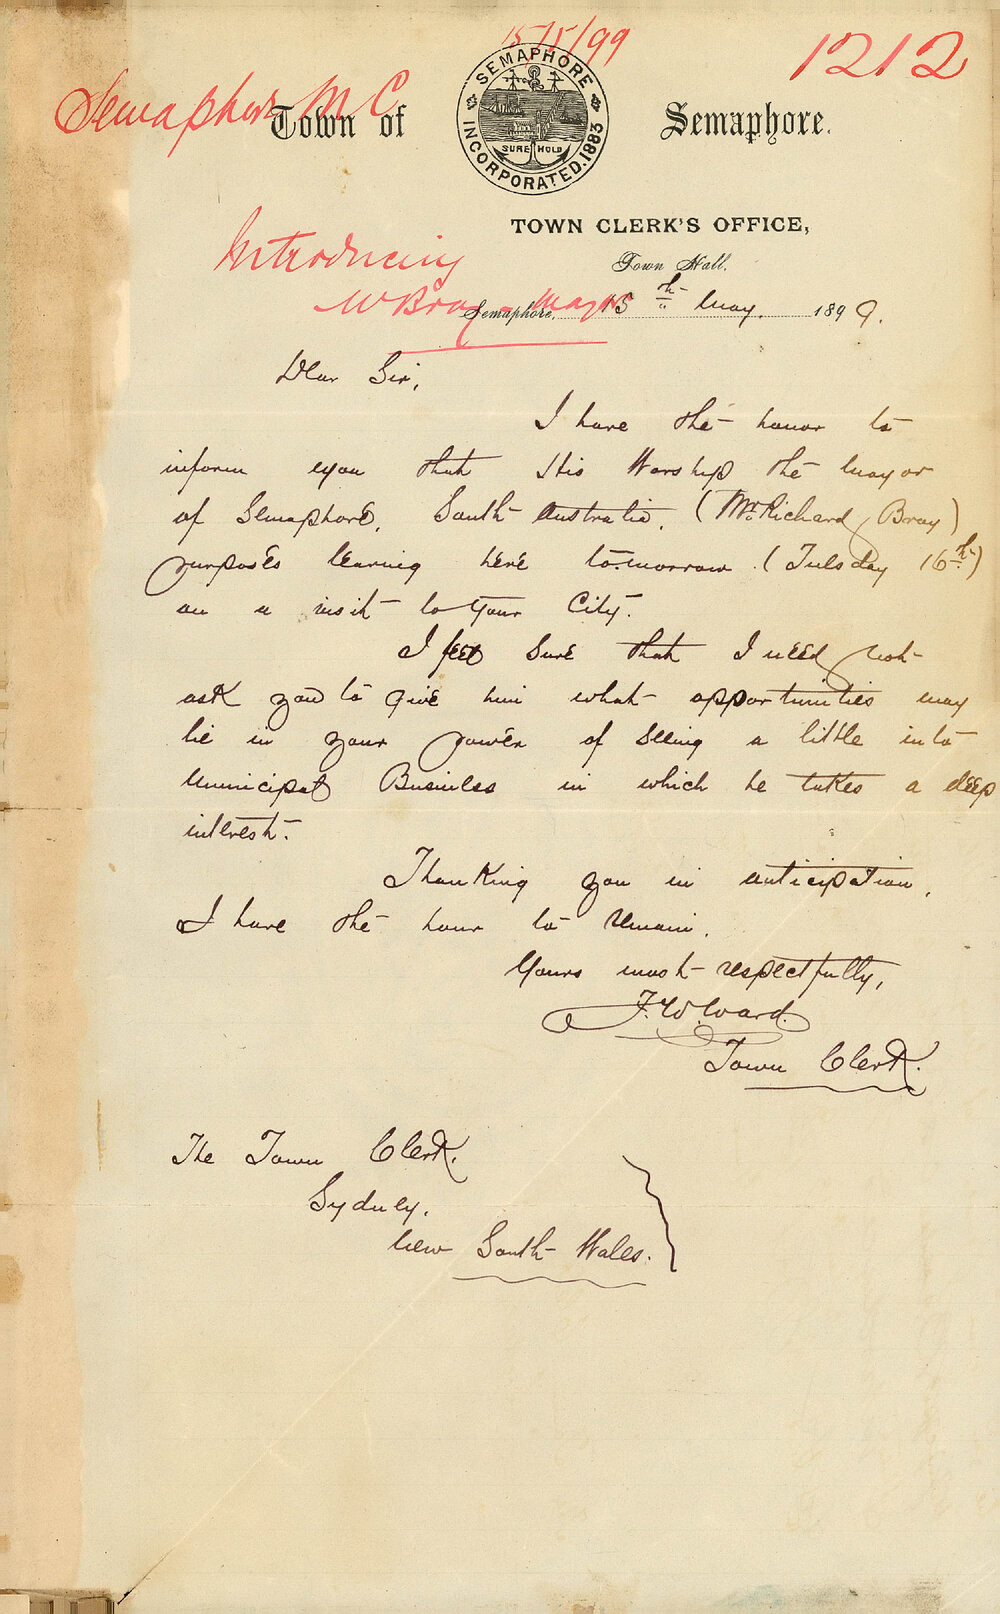 15/5/99
1212
Semaphore M C
Town of Semaphore.
SEMAPHORE
INCORPORATED. 1883
SURE HOLD
TOWN CLERK'S OFFICE,
Town Hall.
Introducing
W Bray - Mayor
Semaphore. 15th May. 1899.
Dear Sir,
I have the honor to
inform you that His Worship the Mayor
of Semaphore, South Australia, (Mr. Richard Bray)
purposes leaving here to.morrow (Tuesday 16th)
on a visit to your City.
I feel sure that I need not
ask you to give him what opportunities may
lie in your power of seeing a little into
Municipal Business in which he takes a deep
interest.
Thanking you in anticipation,
I have the honor to remain.
Yours most respectfully,
F. W. Ward.
Town Clerk.
The Town Clerk.
Sydney.
New South Wales.